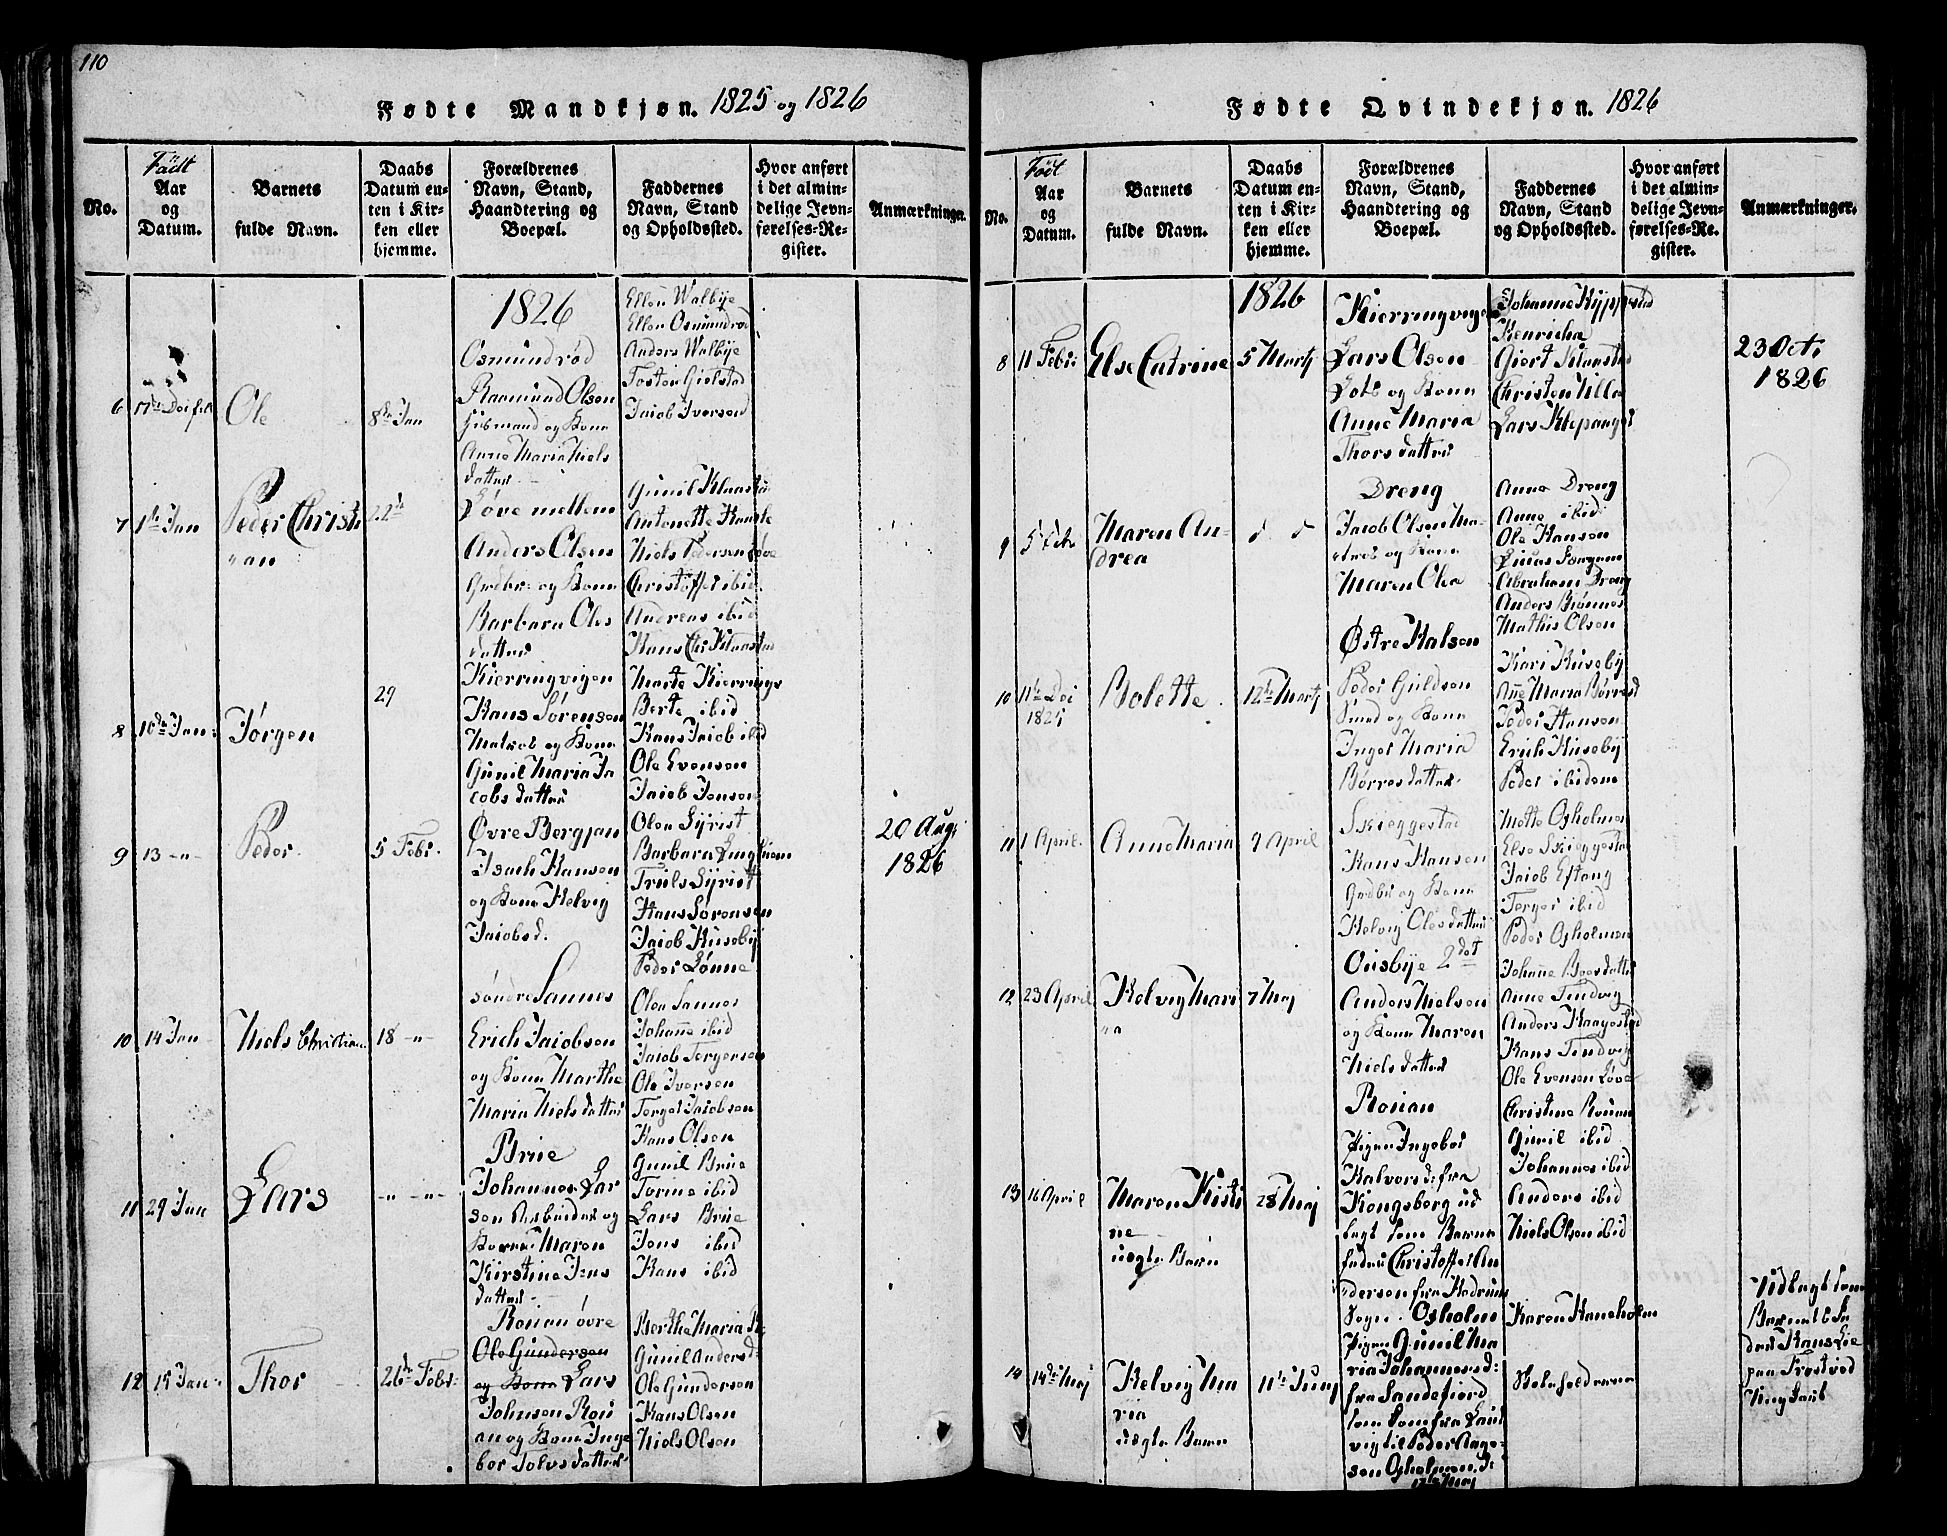 110
Fødte Mandkjøn. 1825 og 1826
No.
Födt
Aar
og
Datum.
Barnets
fulde Navn.
Daabs
Datum en-
ten i Kir-
ken eller
hjemme.
Forældrenes
Navn, Stand,
Haandtering og
Boepæl.
Faddernes
Navn, Stand
og Opholdssted.
Hvor anført
i det almin-
delige Jevn-
førelses-Re-
gister.
Anmærkninger.
1826
6
Ole
8de Jan
Osmundrød
Raamund Olsen
Huusmand og Kone
Anne Maria Niels
datter
Ellen Walbye
Ellen Osmundrød
Anders Walbye
Tosten Gielstad
Jacob Iversen
7
1ste Jan
Peder Christi
"an
22de
Løve mellem
Anders Olsen
Grdbr: og Kone
Barbara Oles
datter
Gunil Klaastad
Antonette
Niels Pedersen Løve
Christoffer ibid.
Andreas ibid
Hans Chr Klaastad
8
10de Jan:
Jørgen
29
Kierringvigen
Hans Sørensen
Matros og Kone
Gunil Maria Ja
cobs datter
Marte Kierringv
Berte ibid
Hans Jacob ibid
Ole Evensen
Jacob Jensen
9
13 -"-
Peder.
5 Febr.
Øvre Bergan
Isach Hansen
og Kone Helvig
Jacobsd.
Olea Syrist
Barbara
Truls Syrist
Hans Sørensen
Jacob Huseby
Peder Lønne
20 Aug:
1826
10
14 Jan
Niels Christian
18 -"-
søndre Sannes
Erich Jacobsen
og Kone Marthe
Maria Niels datter
Olea Sannes
Johanne ibid
Jacob Torgersen
Ole Iversen
Torger Jacobsen
11
29 Jan
Lars
-"- -"-
Brue
Johannes Lar
sen Arbeider og
Kone Maren
Kirstine Jens
datter
Hans Olsen
Gunil Brue
Torine ibid
Lars Brue
Jens ibid
Hans ibid
12
15 Jan:
Thor
26de Febr:
Rouan øvre
Ole Gundersen
og Kone Lars
Johnsen Rou
an og Kone Inge
bor Tolvs datter
Berthe Maria R
Gunil Andersd:
Ole Gundersen
Hans Olsen
Niels Olsen
Fødte Qvindekjøn. 1826
No.
Föt
Aar
og
Datum.
Barnets
fulde Navn.
Daabs
Datum en-
ten i Kir-
ken eller
hjemme.
Forældrenes
Navn, Stand,
Haandtering og
Boepæl.
Faddernes
Navn, Stand
og Opholdssted.
Hvor anført
i det almin-
delige Jevn-
førelses-Re-
gister.
Anmærkninger.
1826
8
11 Febr:
Else Catrine
5 Martj
Kierringvigen
Lars Olsen
Lots og Kone
Anne Maria
Thors datter
Johanne
Henricha
Giert Klaastad
Christen Ulla
Lars Klepanger
23 Oct:
1826
9
5 Feb
Maren An-
drea
d d
Dreng
Jacob Olsen Ma-
tros og Kone
Maren Olea
Anna Dreng
Anne ibid
Ole Hansen
Lucas Jørgens
Abraham Dreng
Anders Biønnes
Mathis Olsen
10
11te Dec
1825
Bolette
12te Martj
Østre Halsen
Peder Guldsen
Smed og Kone
Inger Maria
Børres datter
Kari Huseby
Anne Maria Børresd
Peder Hansen
Erich Huseby
Peder ibidem
11
1 April.
Anne Maria
9 April
Skieggestad
Hans Hansen
Grdbr og Kone
Helvig Oles datter
Mette Osholmen
Else Skieggestad
Jacob Estang
Torger ibid
Peder Osholmen
12
23 April
Helvig Mari
"a
7 Maj
Ousbye 2det
Anders Nielsen
og Kone Maren
Niels datter
Johanne Boesdatter
Anne Tindvig
Anders Haagestad
Hans Tindvig
Ole Evensen Løve
13
16 April
Maren Kisti
ne
uægte Barn
28 Maj
Rouan
Pigen Ingebor
Halvorsd fra
Kongsberg ud
lagt som Barne
fader Christoffer An
dersen fra Hedrum
Sogn
Christine Rouan
Gunil ibid
Johannes ibid
Anders ibid
Niels Olsen ibid
14
14de Maj
Helvig Ma
ria
uægte Barn
11te Junj
Osholm
Pigen Gunil Ma
ria Johannesd:
fra Sandefiord
som kom fra Laur
vig til Peder Aage-
sen Osholmen d:
12te Maj
Karen Hansholm
Udlagt som
Barnets Fa
der Hans Lie
paa Frostved